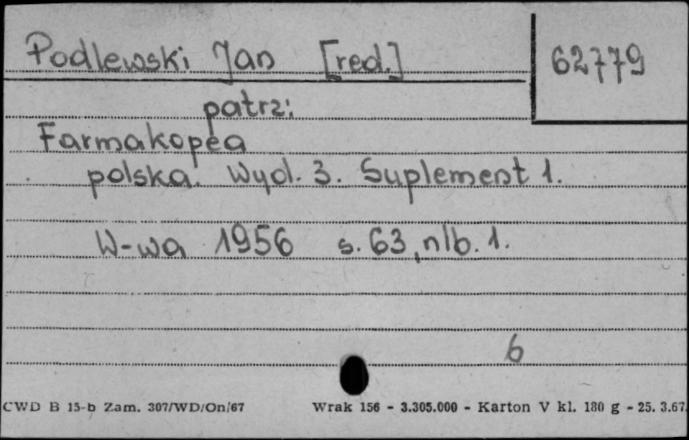 Podlewski Jan [red.] 62779
patrz:
Farmakopea
polska. Wyd. 3. Suplement 1.
W-wa 1956 s. 63, nlb. 1.
6
CWD B 15-b Zam. 307/WD/On/67 Wrak 156 - 3.305.000 - Karton V kl. 180 g - 25. 3.67